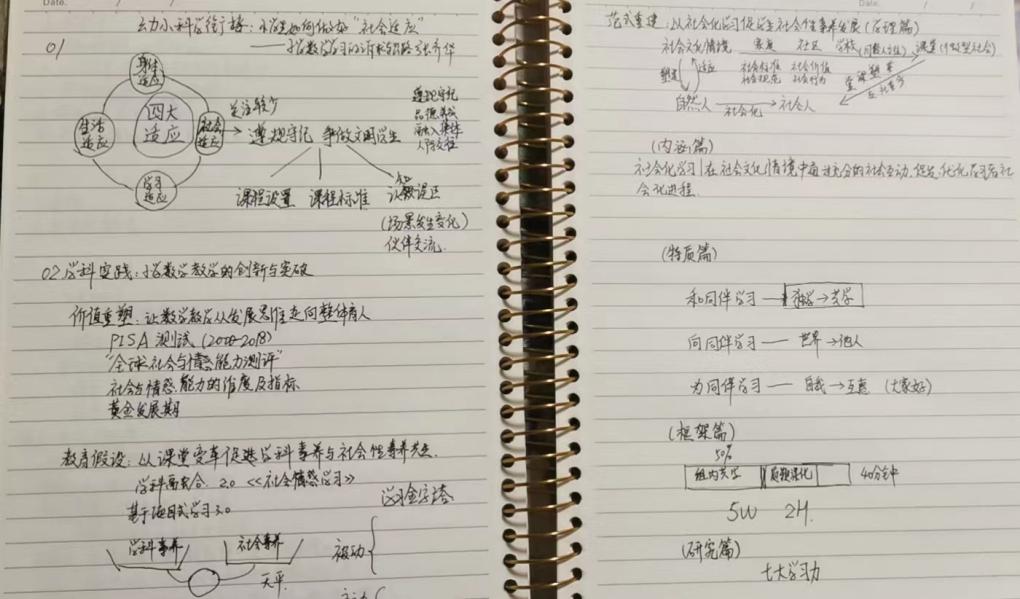 Date.
幼小科学衔接：小学如何做好"社会适应"
——小学数学学习的
01
身体适应
四大适应
生活适应
社会适应
学习适应
关注较少
遵规守纪 争做文明学生
遵规守纪
品德养成
融入集体
人际交往
课程设置 课程标准 认知误区
(场景发生变化)
伙伴交流.
02 学科实践：小学数学教学的创新与突破
价值重塑：让数学教学从发展思维走向整体育人
PISA 测试 (2000-2018)
"全球社会与情感能力测评"
社会与情感能力的维度及指标
黄金发展期
教育假设：从课堂变革促进学科素养与社会性素养共生.
学科融合 2.0 《社会情感学习》
基于项目式学习 3.0
学习金字塔
学科素养 社会素养
天平
被动
Date.
范式重建：从社会化学习促学生社会性素养发展 (原理篇)
社会文化情境 家庭 社区 学校 (同龄人文化) 课堂 (微型社会)
塑造 适应
社会标准 社会价值
社会规范 社会行为
自然人 社会化 社会人
(内涵篇)
社会化学习 在社会文化情境中通过充分的社会互动,促进
会化进程.
(特质篇)
和同伴学习 —— 独学→共学
向同伴学习 —— 世界→他人
为同伴学习 —— 自我→互惠 (大家好)
(框架篇)
50%
组内共学 质疑深化 40分钟
5W 2H.
(研究篇)
七大学习力